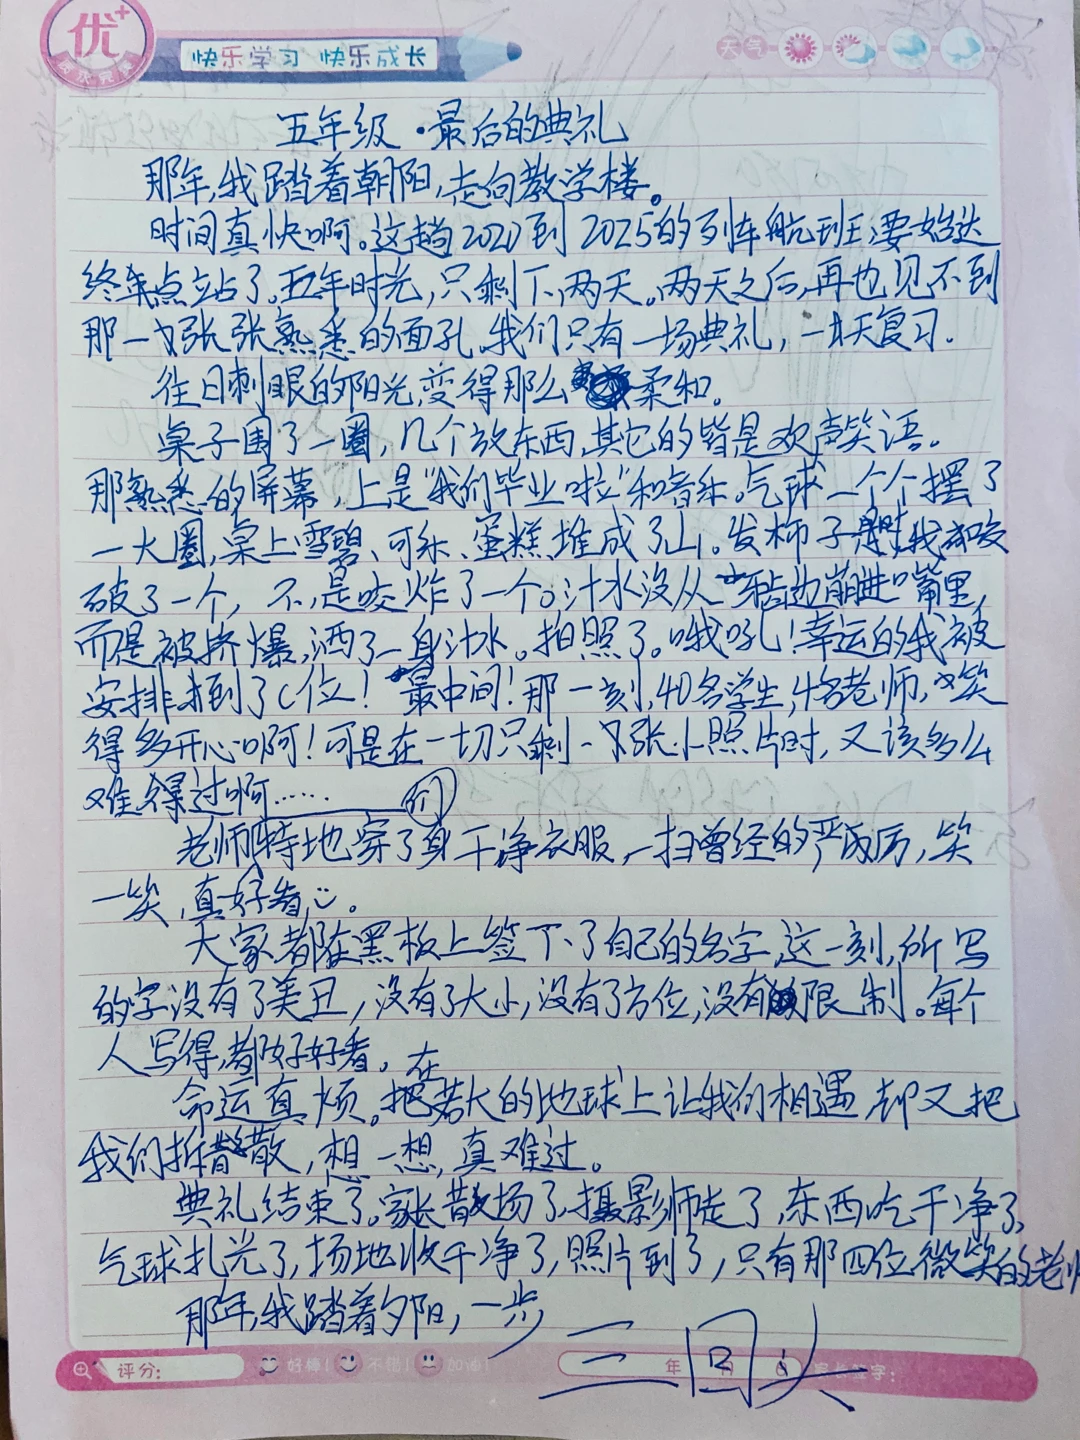 优+
快乐学习 快乐成长
天气
五年级·最后的典礼
那年,我踏着朝阳,走向教学楼。
时间真快啊。这趟2020到2025的列车航班要始达
终点站了。五年时光,只剩下两天。两天之后,再也见不到
那一张张熟悉的面孔。我们只有一场典礼,一天复习.
往日刺眼的阳光变得那么柔和。
桌子围了一圈,几个放东西,其它的皆是欢声笑语。
那熟悉的屏幕,上是“我们毕业啦”和音乐。气球一个个摆了
一大圈,桌上雪碧、可乐、蛋糕堆成了山。发柿子时,我却咬
破了一个,不,是咬炸了一个。汁水没从牙齿边崩进嘴里,
而是被挤爆,洒了一身汁水。拍照了。哦吼!幸运的我被
安排到了C位!最中间!那一刻,40名学生,4名老师,笑
得多开心啊!可是在一切只剩一张小照片时,又该多么
难得过啊……
们
老师特地穿了身干净衣服,一扫曾经的严厉,笑
一笑,真好看。
大家都在黑板上签下了自己的名字,这一刻,所写
的字没有了美丑,没有了大小,没有了方位,没有限制。每个
人写得,都好好看。
在
命运真烦。把若大的地球上让我们相遇,却又把
我们拆散,想一想,真难过。
典礼结束了。家长散场了,摄影师走了,东西吃干净了,
气球扎光了,场地收干净了,照片到了,只有那四位微笑的老师
那年,我踏着夕阳,一步
三回头
评分: 好棒! 不错! 加油! 年 月 日 家长签字: